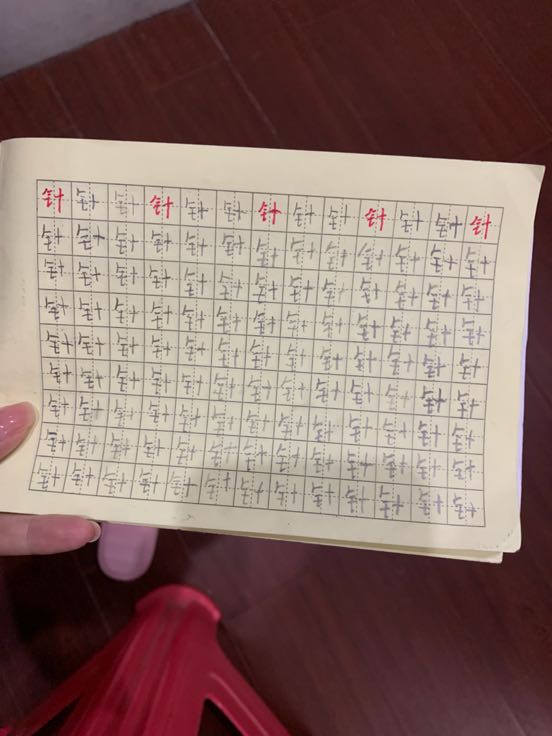 针针针针针针针针针针针针针
针针针针针针针针针针针针针
针针针针针针针针针针针针针
针针针针针针针针针针针针针
针针针针针针针针针针针针针
针针针针针针针针针针针针针
针针针针针针针针针针针针针
针针针针针针针针针针针针针
针针针针针针针针针针针针针